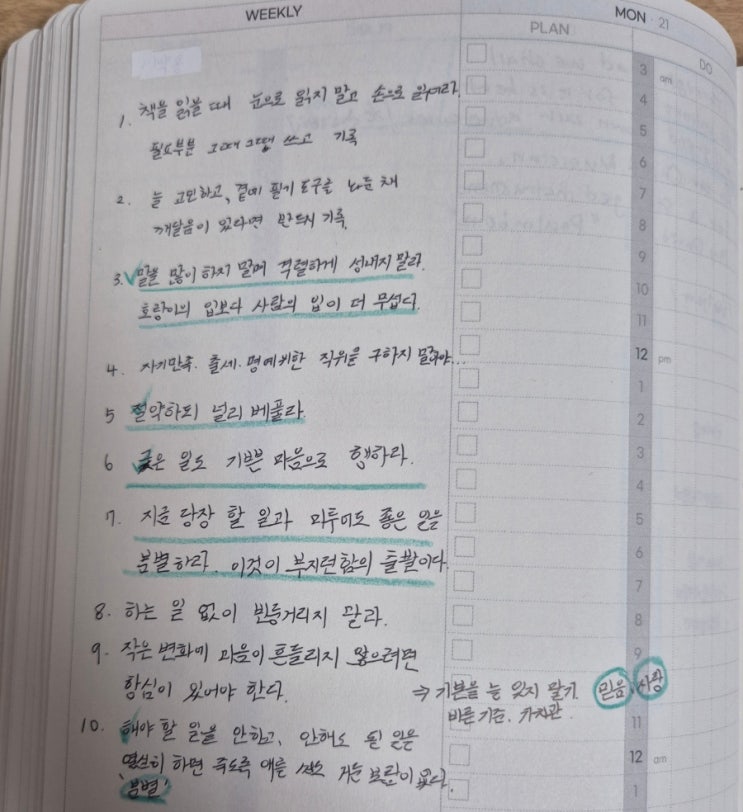 WEEKLY
PLAN
MON · 21
DO
1. 책을 읽을 때 눈으로 읽지 말고 손으로 읽어라.
필요부분 그때 그때 쓰고 기록
2. 늘 고민하고, 곁에 필기 도구를 놔둔 채
깨달음이 있다면 반드시 기록.
3. 말을 많이 하지 말며 격렬하게 성내지 말라.
호랑이의 입보다 사람의 입이 더 무섭다.
4. 자기만족. 출세. 명예 위한 직위를 구하지 말아야...
5 절약하되 널리 베풀라.
6 궂은 일도 기쁜 마음으로 행하라.
7. 지금 당장 할 일과 미루어도 좋은 일을
분별하라. 이것이 부지런함의 출발이다.
8. 하는 일 없이 빈둥거리지 말라.
9. 작은 변화에 마음이 흔들리지 않으려면
항심이 있어야 한다.
⇒ 기본을 늘 잊지 말기. 믿음, 사랑
바른 기준. 가치관.
10. 해야 할 일을 안하고, 안해도 될 일은
열심히 하면 죽도록 애를 써도 거둔 보람이 없다.
분별!
3 am
4
5
6
7
8
9
10
11
12 pm
1
2
3
4
5
6
7
8
9
11
12 am
1